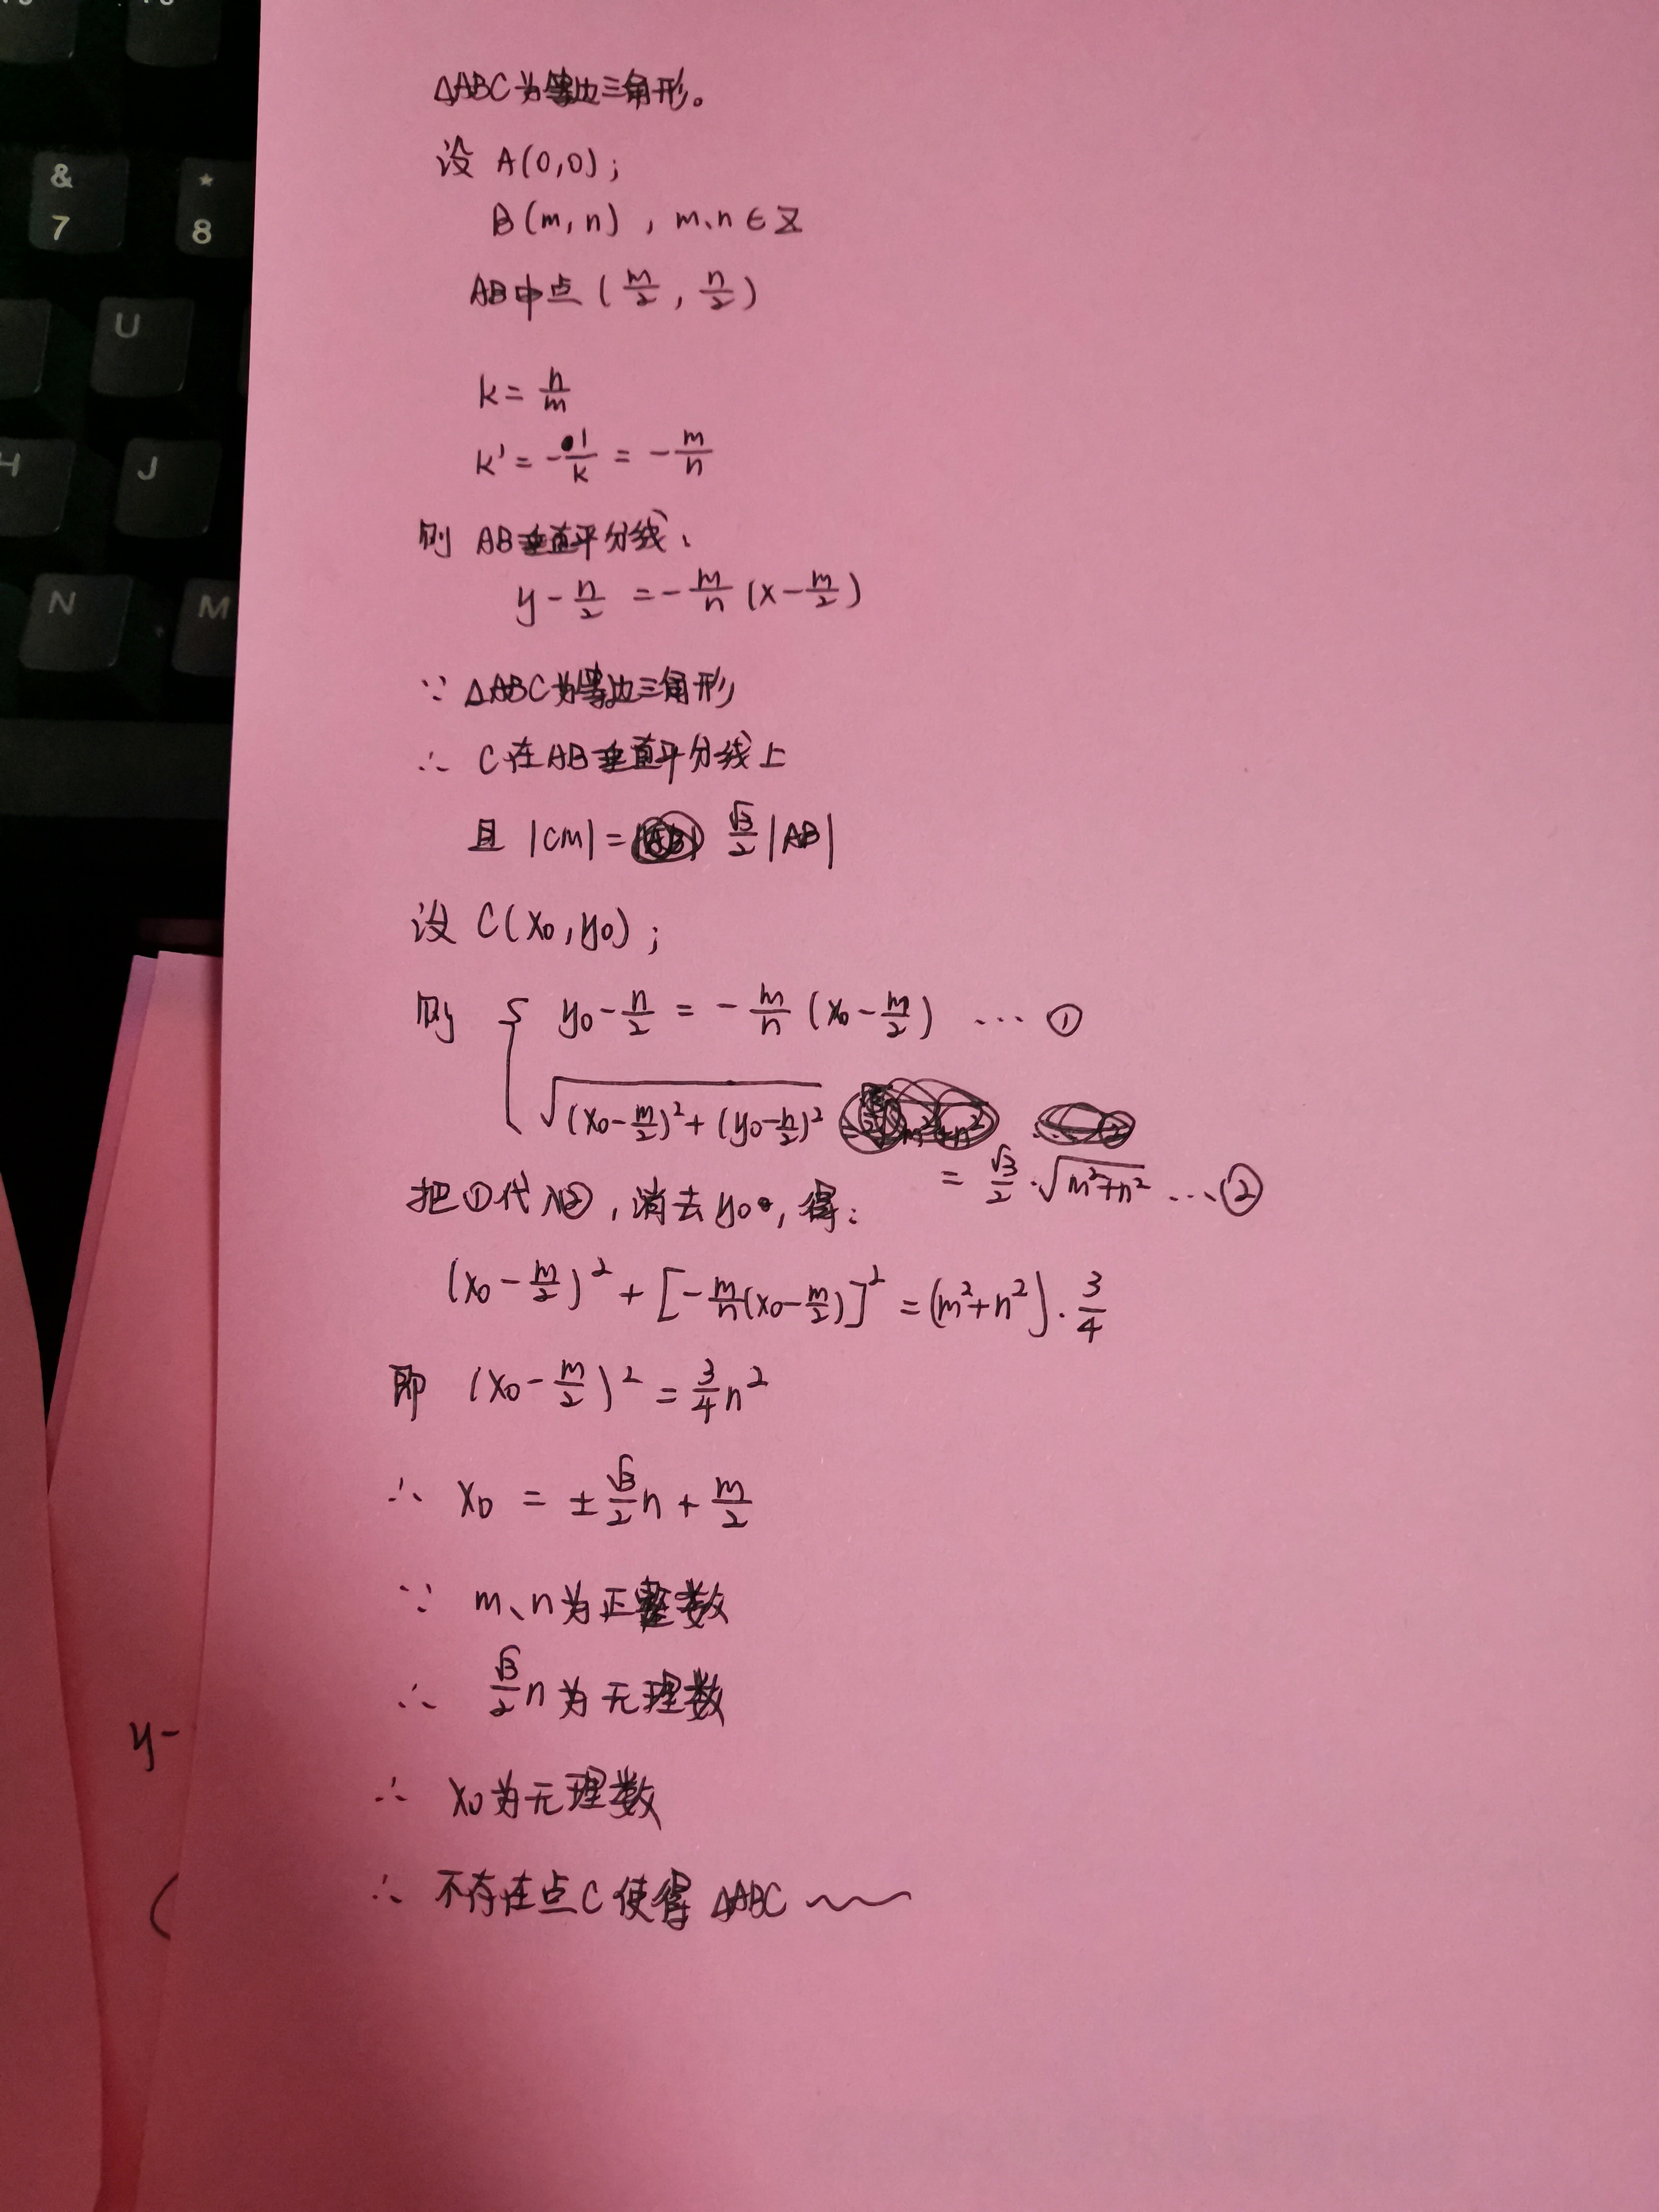 △ABC为等边三角形。
设 A(0,0);
B(m,n), m、n∈Z
AB中点 (m/2, n/2)
k = n/m
k' = -1/k = -m/n
则 AB垂直平分线:
y - n/2 = -m/n (x - m/2)
∵ △ABC为等边三角形
∴ C在AB垂直平分线上
且 |CM| = √3/2 |AB|
设 C(x₀, y₀);
则 { y₀ - n/2 = -m/n (x₀ - m/2) … ①
√((x₀ - m/2)² + (y₀ - n/2)²)
= √3/2 · √(m²+n²) … ②
把①代入②, 消去y₀, 得:
(x₀ - m/2)² + [-m/n(x₀ - m/2)]² = (m²+n²) · 3/4
即 (x₀ - m/2)² = 3/4 n²
∴ x₀ = ± √3/2 n + m/2
∵ m、n为正整数
∴ √3/2 n 为无理数
∴ x₀为无理数
∴ 不存在点C使得 △ABC
y-
(
&
7
*
8
U
H
J
N
M